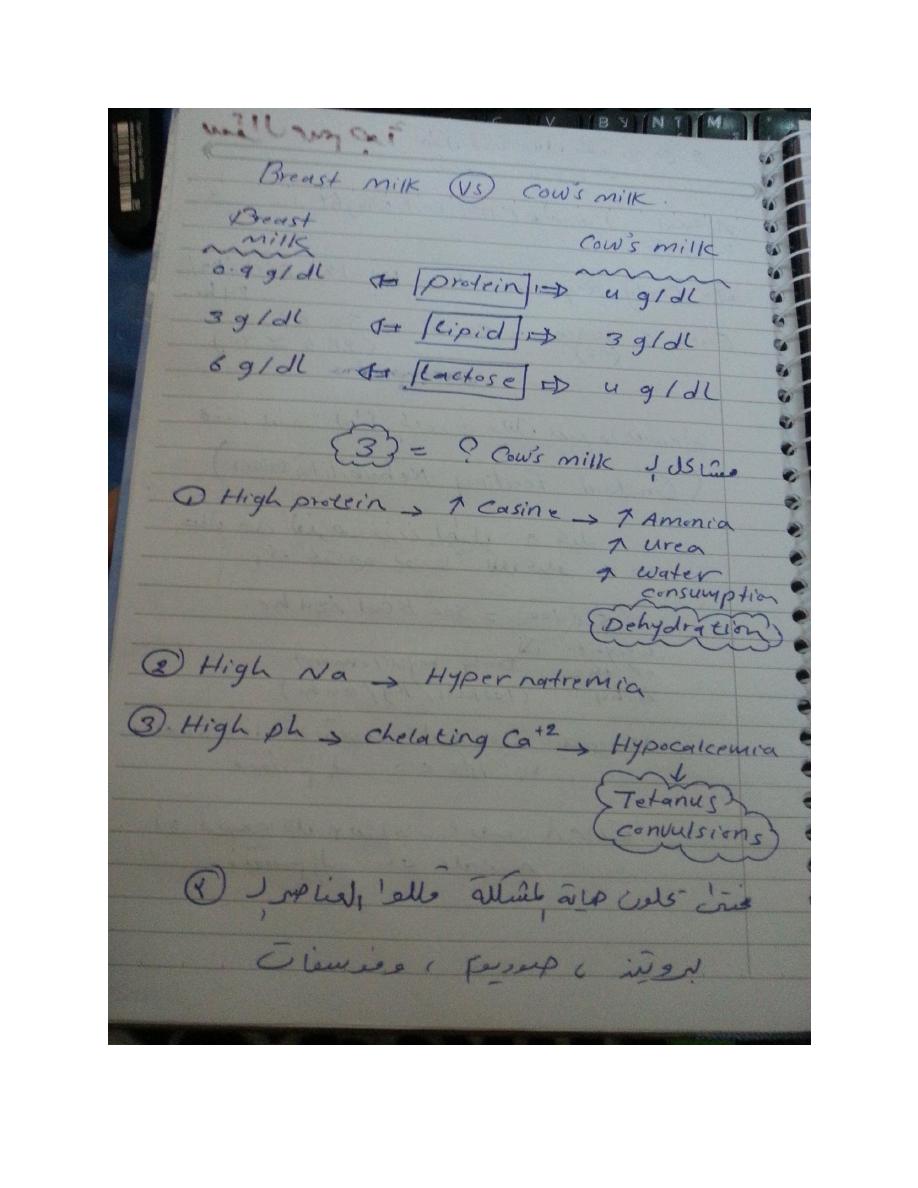 Breast milk VS Cow's milk.
Breast milk
Cow's milk
0.9 g/dl ⇐ protein ⇒ 4 g/dl
3 g/dl ⇐ Lipid ⇒ 3 g/dl
6 g/dl ⇐ Lactose ⇒ 4 g/dl
3 = ? Cow's milk مشاكل ال
① High protein → ↑ Casine → ↑ Amonia
↑ urea
↑ water
consumption
Dehydration
② High Na → Hypernatremia
③. High ph → chelating Ca+2 → Hypocalcemia
↓
Tetanus
convulsions
المشكلة قللوا العناصر ال
بروتين ، صوديوم ، وفوسفات